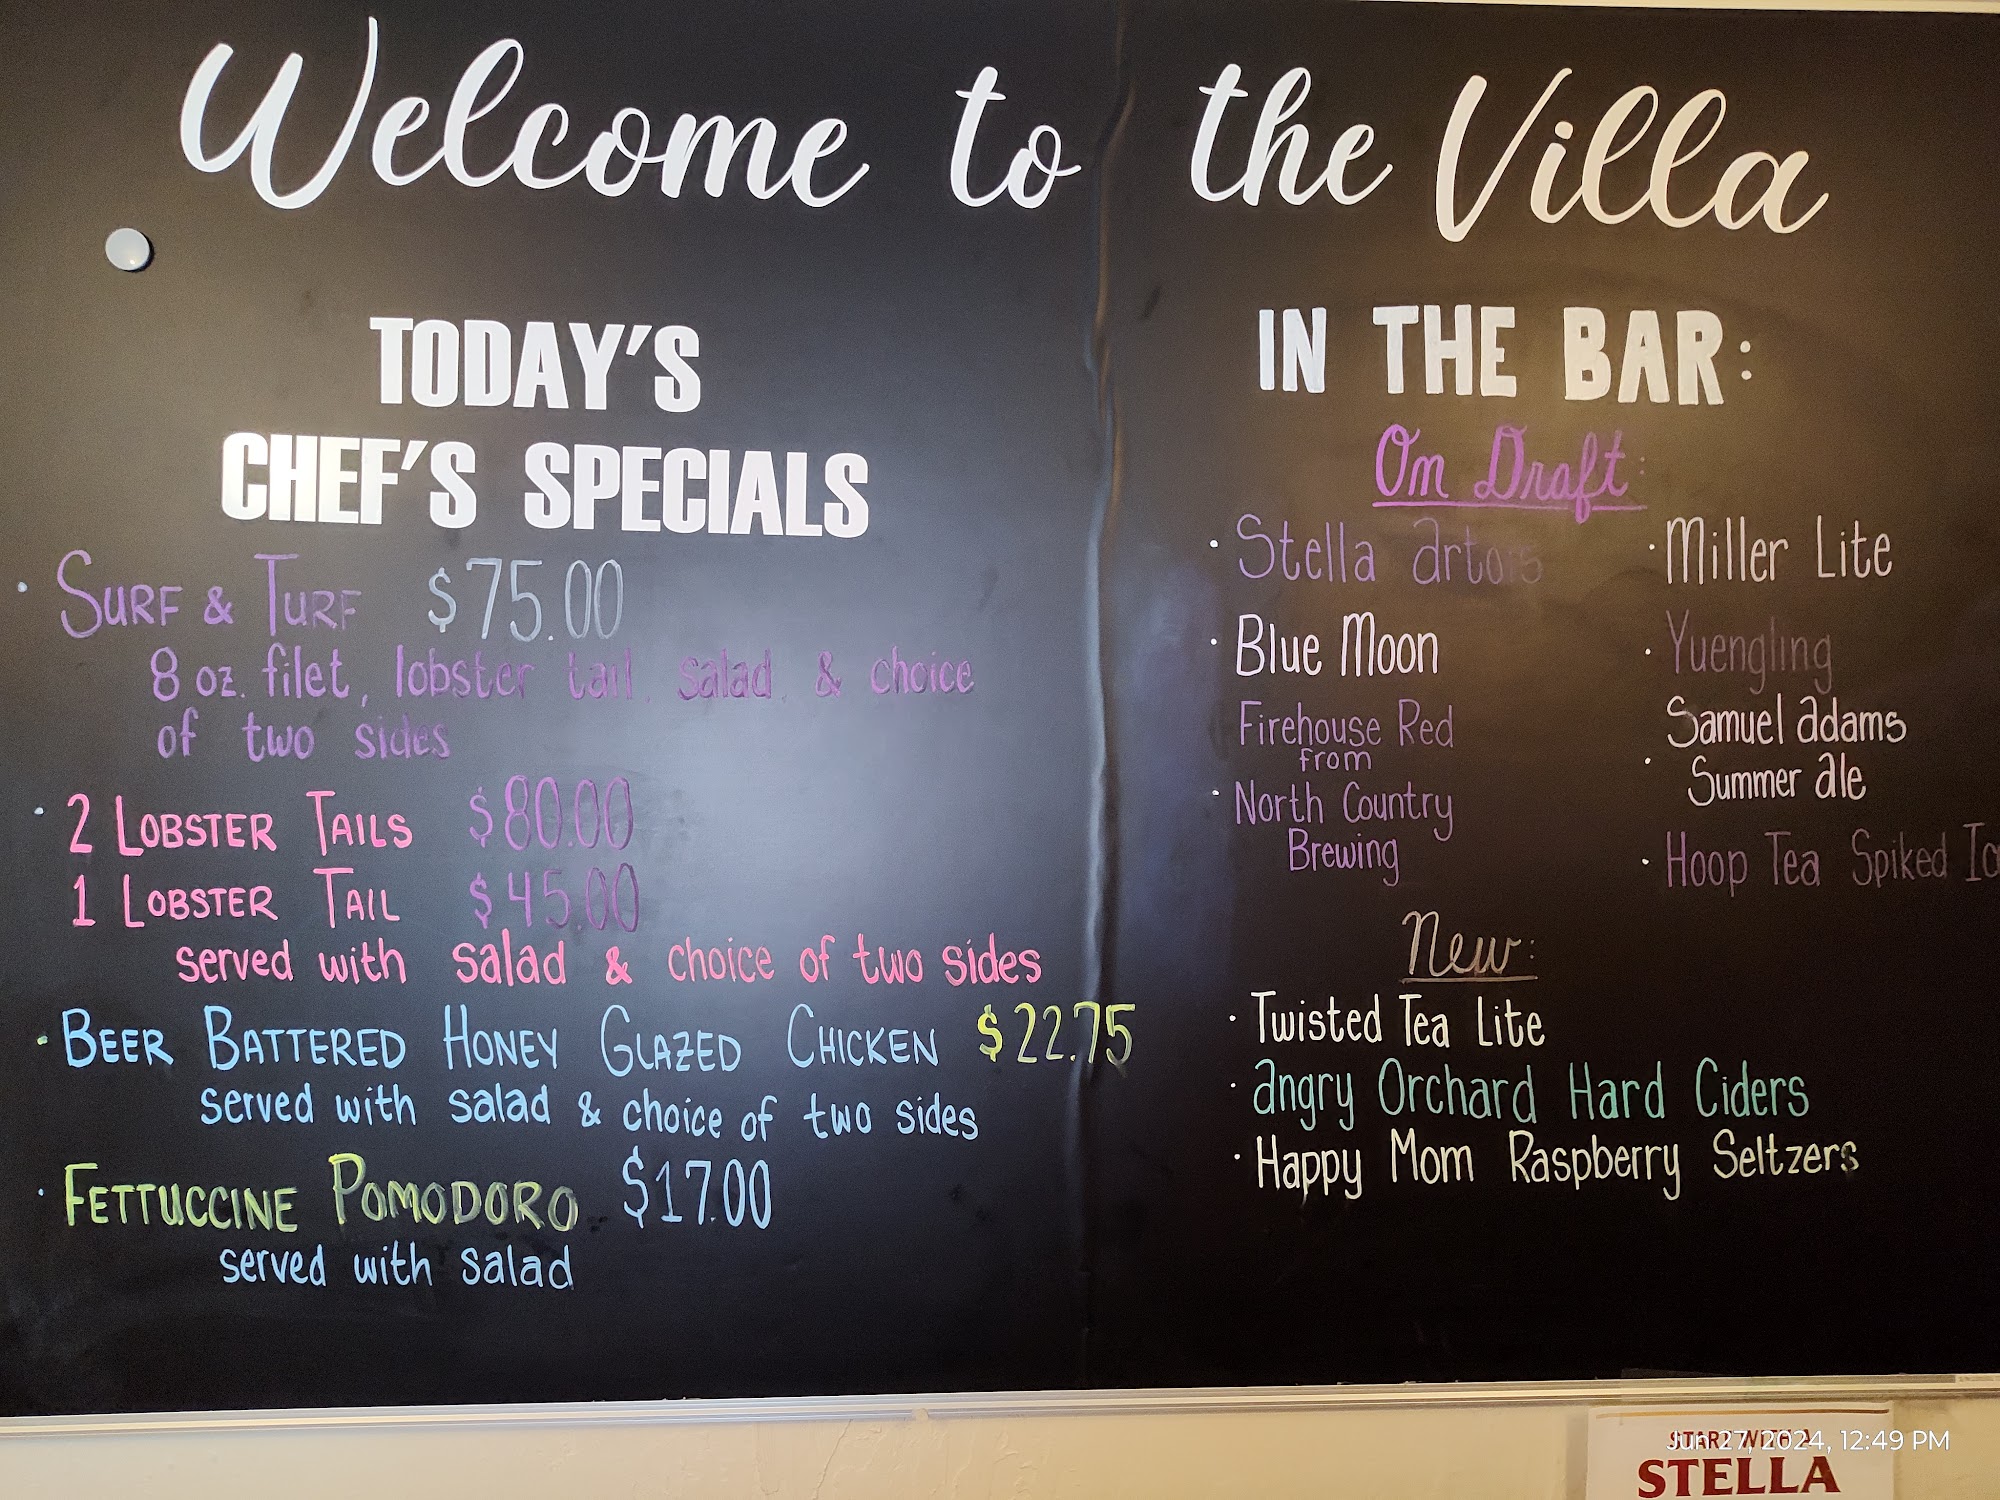 Welcome to the Villa
TODAY'S
CHEF'S SPECIALS
· SURF & TURF $75.00
8 oz. filet, lobster tail, salad, & choice
of two sides
· 2 LOBSTER TAILS $80.00
1 LOBSTER TAIL $45.00
served with salad & choice of two sides
· BEER BATTERED HONEY GLAZED CHICKEN $22.75
served with salad & choice of two sides
· FETTUCCINE POMODORO $17.00
served with salad
IN THE BAR:
On Draft:
· Stella artois
· Blue Moon
Firehouse Red
from
· North Country
Brewing
· Miller Lite
· Yuengling
Samuel adams
· Summer ale
· Hoop Tea Spiked
New:
· Twisted Tea Lite
· angry Orchard Hard Ciders
· Happy Mom Raspberry Seltzers
START WITH A
STELLA
Jun 27, 2024, 12:49 PM